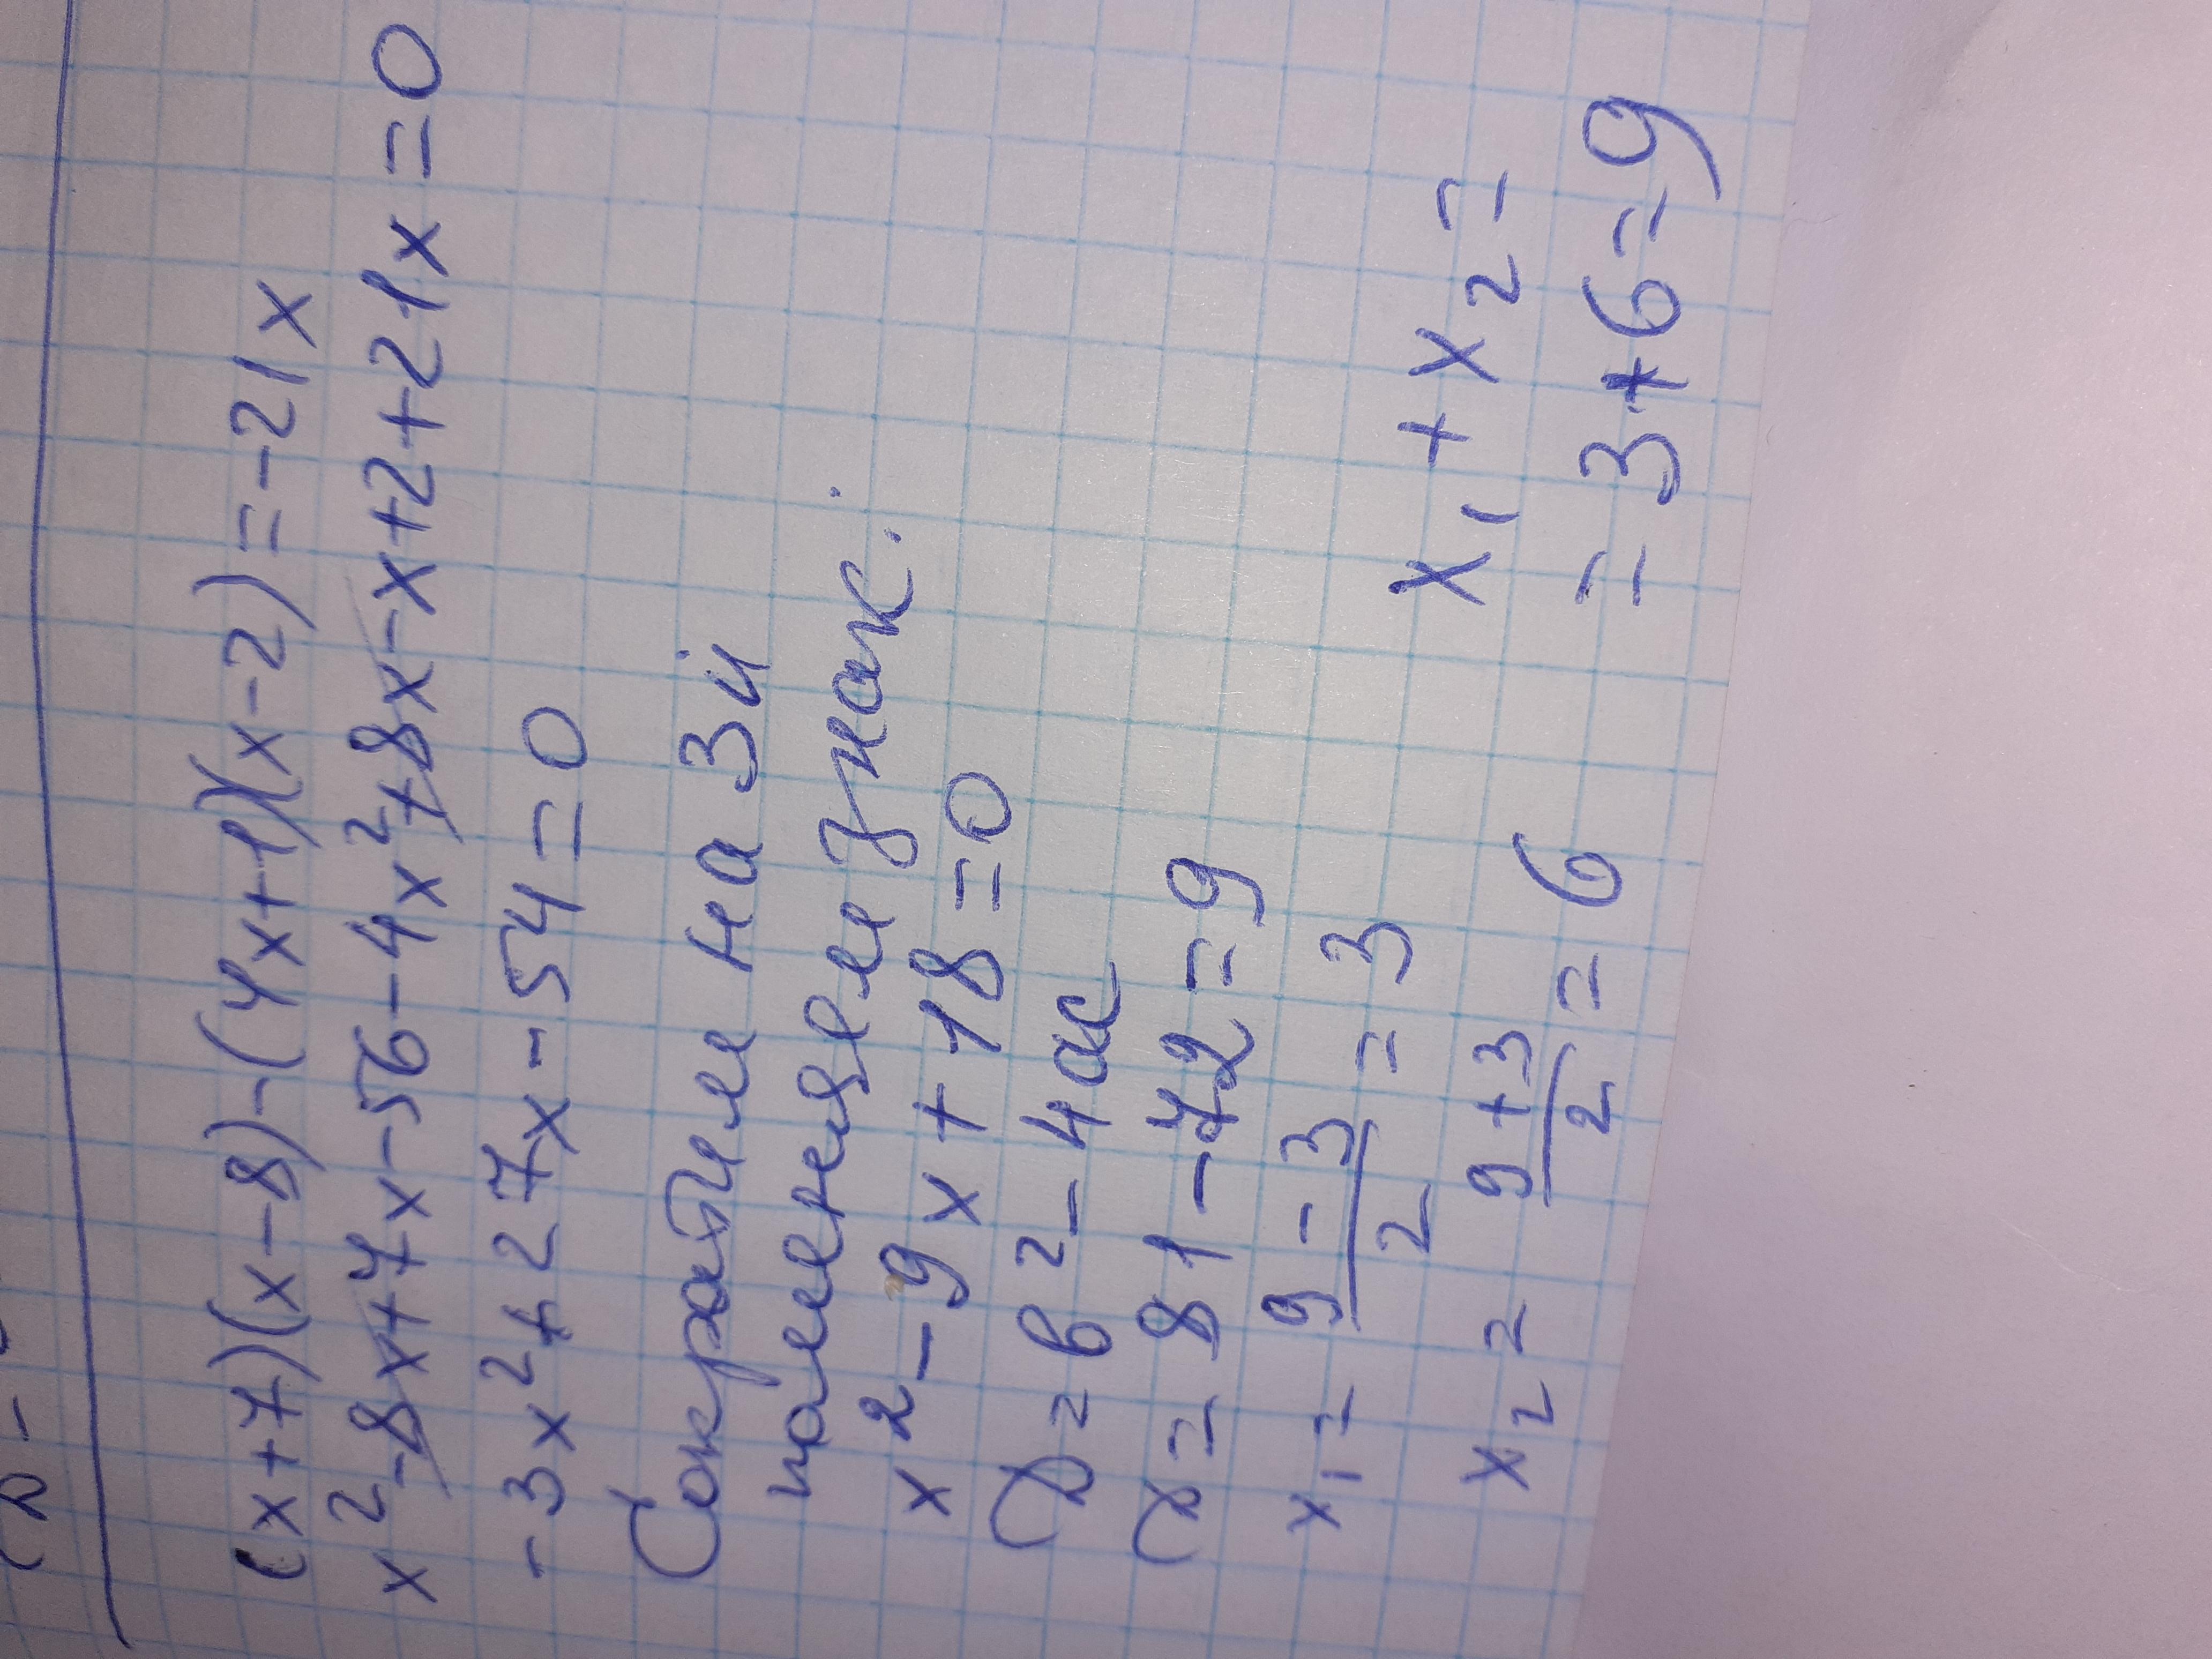 (x+7)(x-8)-(4x+1)(x-2)=-21x
x²-8x+7x-56-4x²+8x-x+2+21x=0
-3x²+27x-54=0
Сократим на 3 и
поменяем знак.
x²-9x+18=0
D=b²-4ac
D=81-72=9
x₁= (9-3)/2 =3
x₂= (9+3)/2 =6
x₁+x₂=
=3+6=9